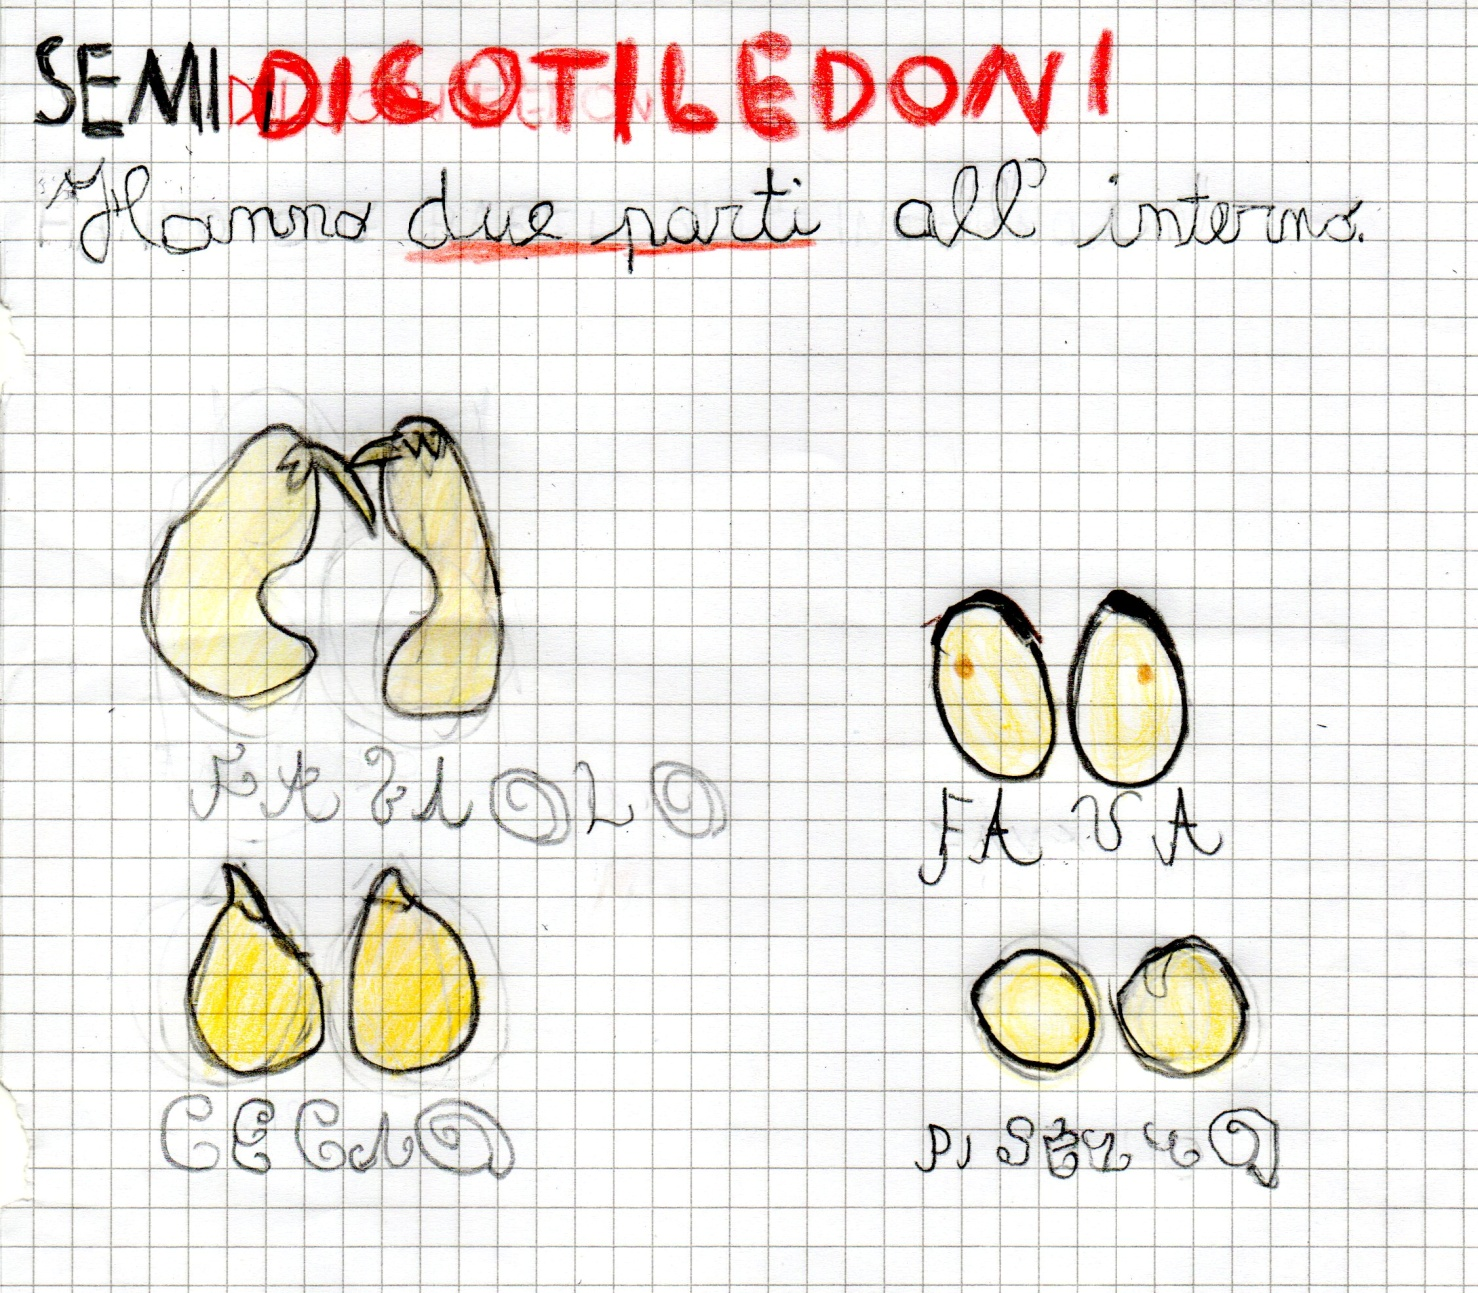 SEMI DICOTILEDONI
Hanno due parti all'interno.
FAGIOLO
FAVA
CECIO
PISELLO